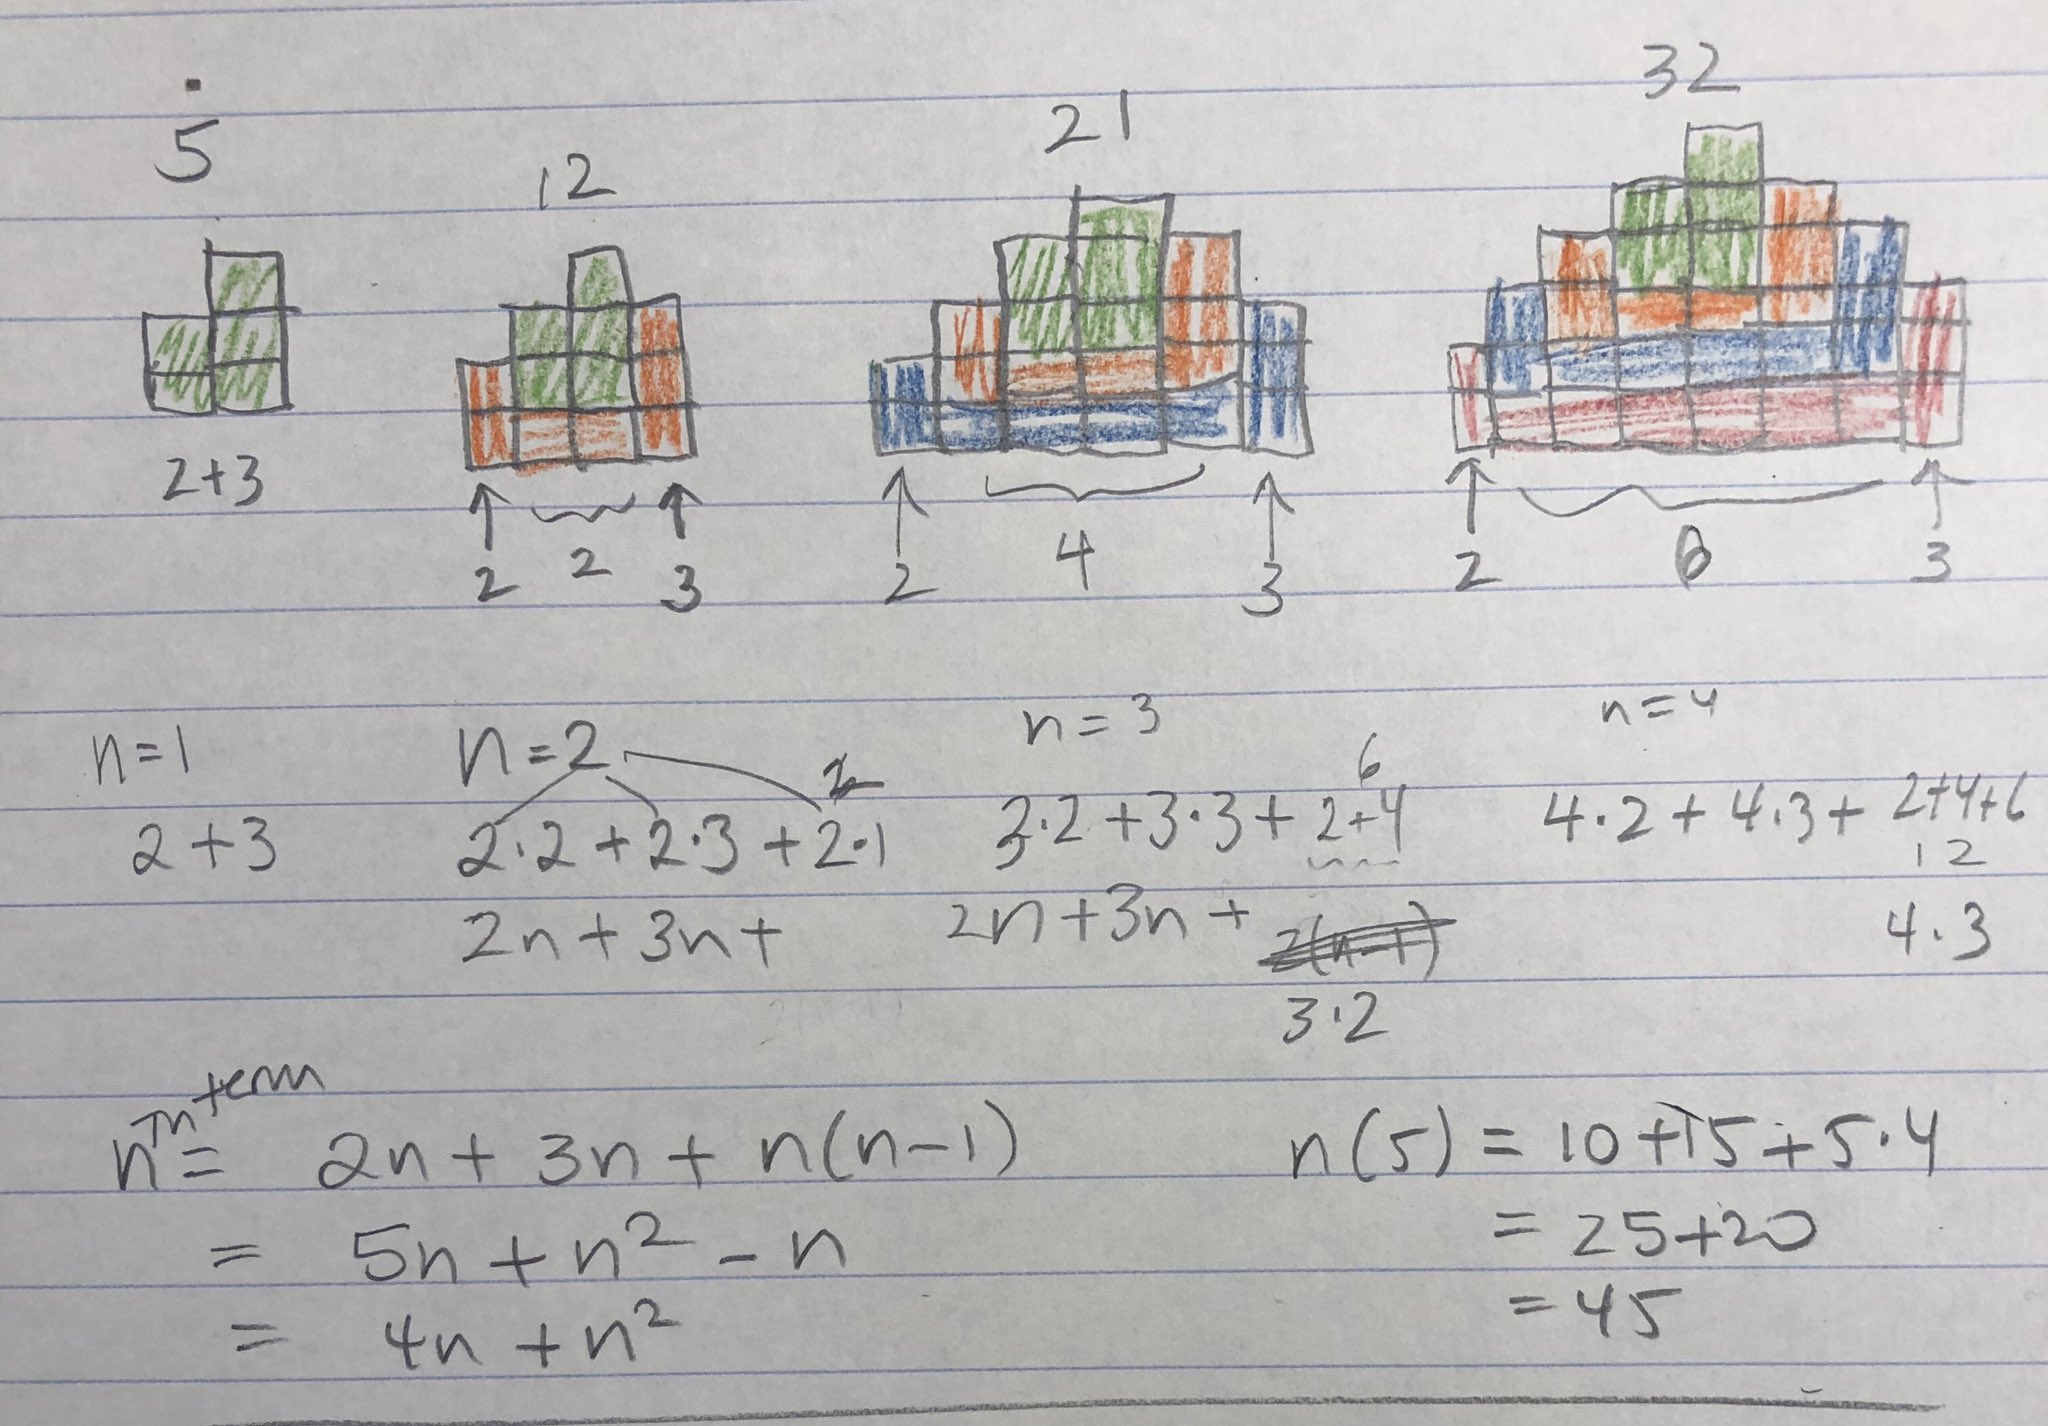 5 12 21 32
2+3
2 2 3 2 4 3 2 6 3
n=1 n=2 n=3 n=4
2+3 2·2+2·3+2·1 3·2+3·3+2+4 4·2+4·3+2+4+6
6 12
2n+3n+ 2n+3n+ 4·3
3·2
nth term
= 2n+3n+n(n-1) n(5) = 10+15+5·4
= 5n+n² - n = 25+20
= 4n+n² = 45